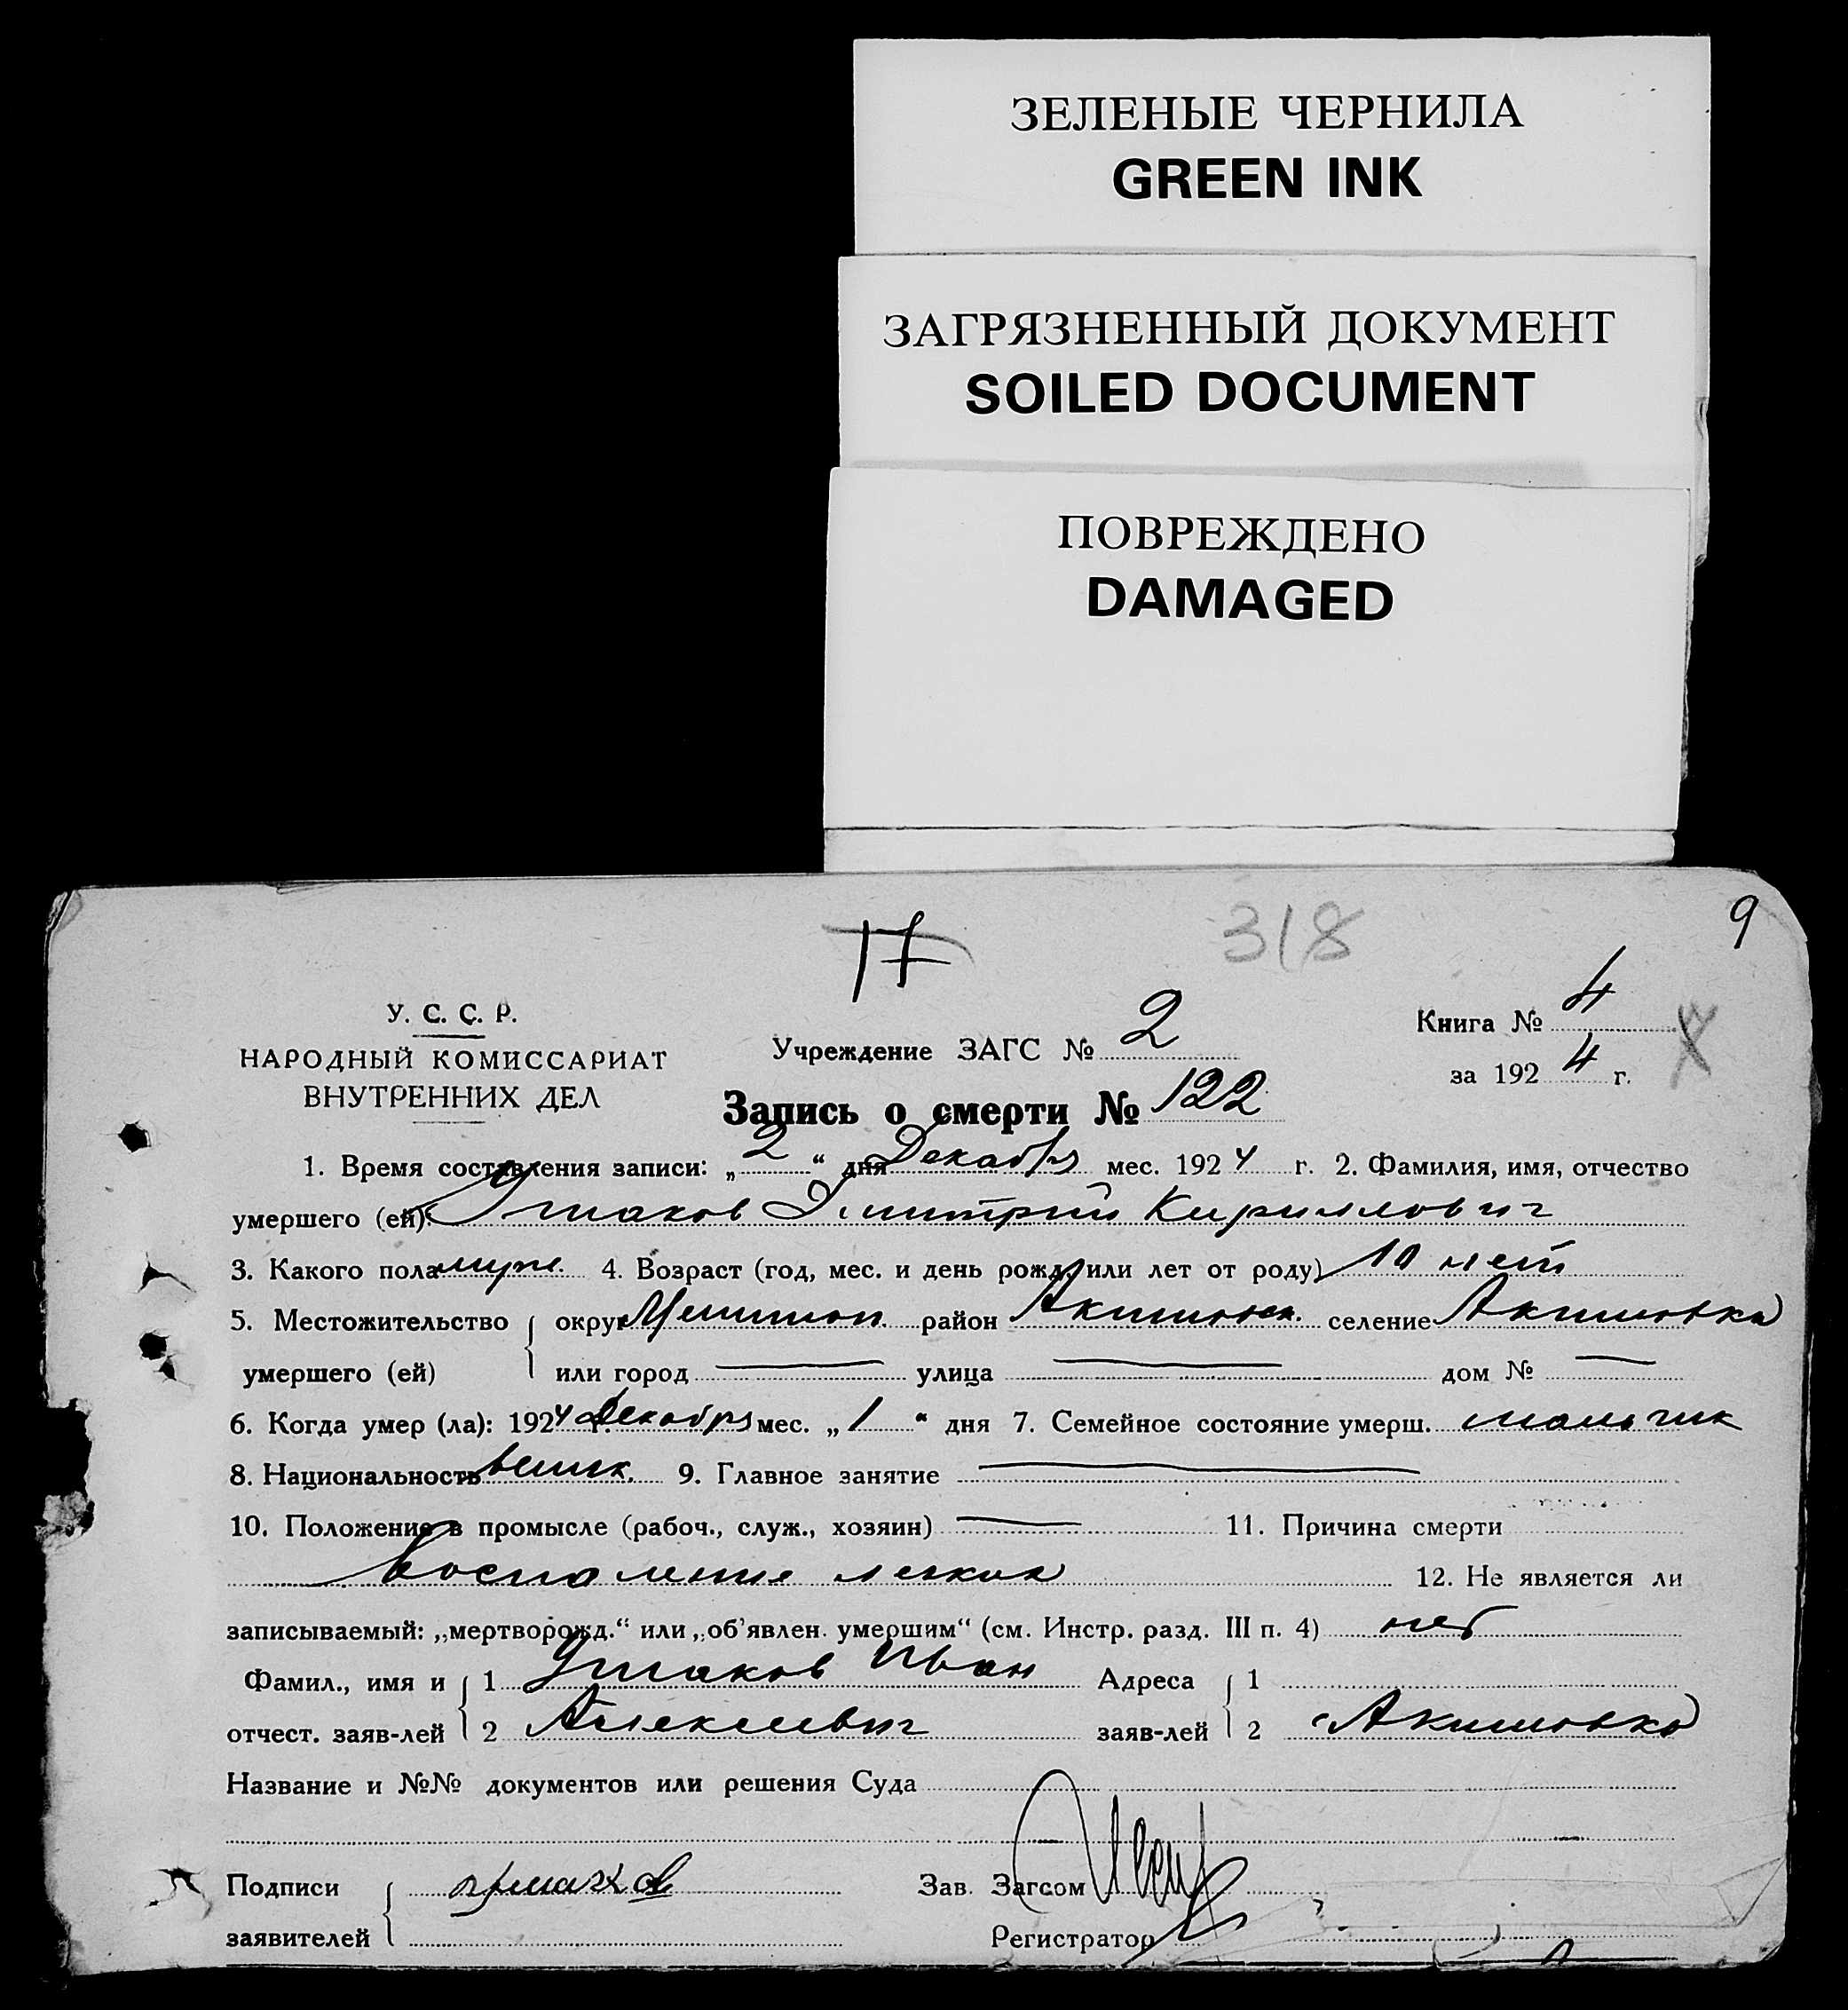 ЗЕЛЕНЫЕ ЧЕРНИЛА
GREEN INK
ЗАГРЯЗНЕННЫЙ ДОКУМЕНТ
SOILED DOCUMENT
ПОВРЕЖДЕНО
DAMAGED
17 318 9
У. С. С. Р.
НАРОДНЫЙ КОМИССАРИАТ
ВНУТРЕННИХ ДЕЛ
Учреждение ЗАГС № 2
Книга № 4
за 1924 г.
Запись о смерти № 122
1. Время составления записи: „2“ дня Декабря мес. 1924 г. 2. Фамилия, имя, отчество
умершего (ей): Ушаков Димитрий Кириллович
3. Какого пола муж. 4. Возраст (год, мес. и день рожд. или лет от роду) 10 лет
5. Местожительство { округ район Акимовск. селение Акимовка
умершего (ей) или город — улица — дом № —
6. Когда умер (ла): 1924 г. Декабря мес. „1“ дня 7. Семейное состояние умерш. мальчик
8. Национальность 9. Главное занятие —
10. Положение в промысле (рабоч., служ., хозяин) — 11. Причина смерти
Воспаление легких 12. Не является ли
записываемый: „мертворожд.“ или „об'явлен. умершим“ (см. Инстр. разд. III п. 4) нет
Фамил., имя и { 1 Ушаков Иван Адреса { 1
отчест. заяв-лей 2 Алексеевич заяв-лей 2 Акимовка
Название и №№ документов или решения Суда
Подписи { Зав. Загсом
заявителей Регистратор